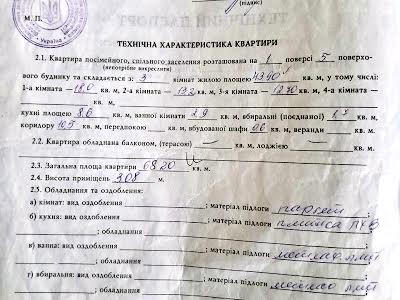 ТЕХНІЧНИЙ ПАСПОРТ
(підпис)
М. П.
Україна
ТЕХНІЧНА ХАРАКТЕРИСТИКА КВАРТИРИ
2.1. Квартира посімейного, спільного заселення розташована на 1 поверсі 5 поверхо-
(непотрібне викреслити)
вого будинку та складається з 3 кімнат жилою площею 43,90 кв. м, у тому числі:
1-а кімната — 18,0 кв. м, 2-а кімната — 13,2 кв. м, 3-я кімната — 12,70 кв. м, 4-а кімната —
кв. м,
кухні площею 8,6 кв. м, ванної кімнати 2,9 кв. м, вбиральні (поєднаної) 1,7 кв. м,
коридору 10,5 кв. м, передпокою — кв. м, вбудованої шафи 0,6 кв. м, веранди — кв. м,
— кв. м.
2.2. Квартира обладнана балконом, (терасою) — кв. м, лоджією — кв. м,
кв. м.
2.3. Загальна площа квартири 68,20 кв. м.
2.4. Висота приміщень 3,08 м.
2.5. Обладнання та оздоблення:
а) кімнат: вид оздоблення ; матеріал підлоги паркет ;
б) кухня: вид оздоблення ; матеріал підлоги плитка ПХВ
; обладнання ;
в) ванна: вид оздоблення ; матеріал підлоги
; обладнання ;
г) вбиральня: вид оздоблення ; матеріал підлоги
; обладнання